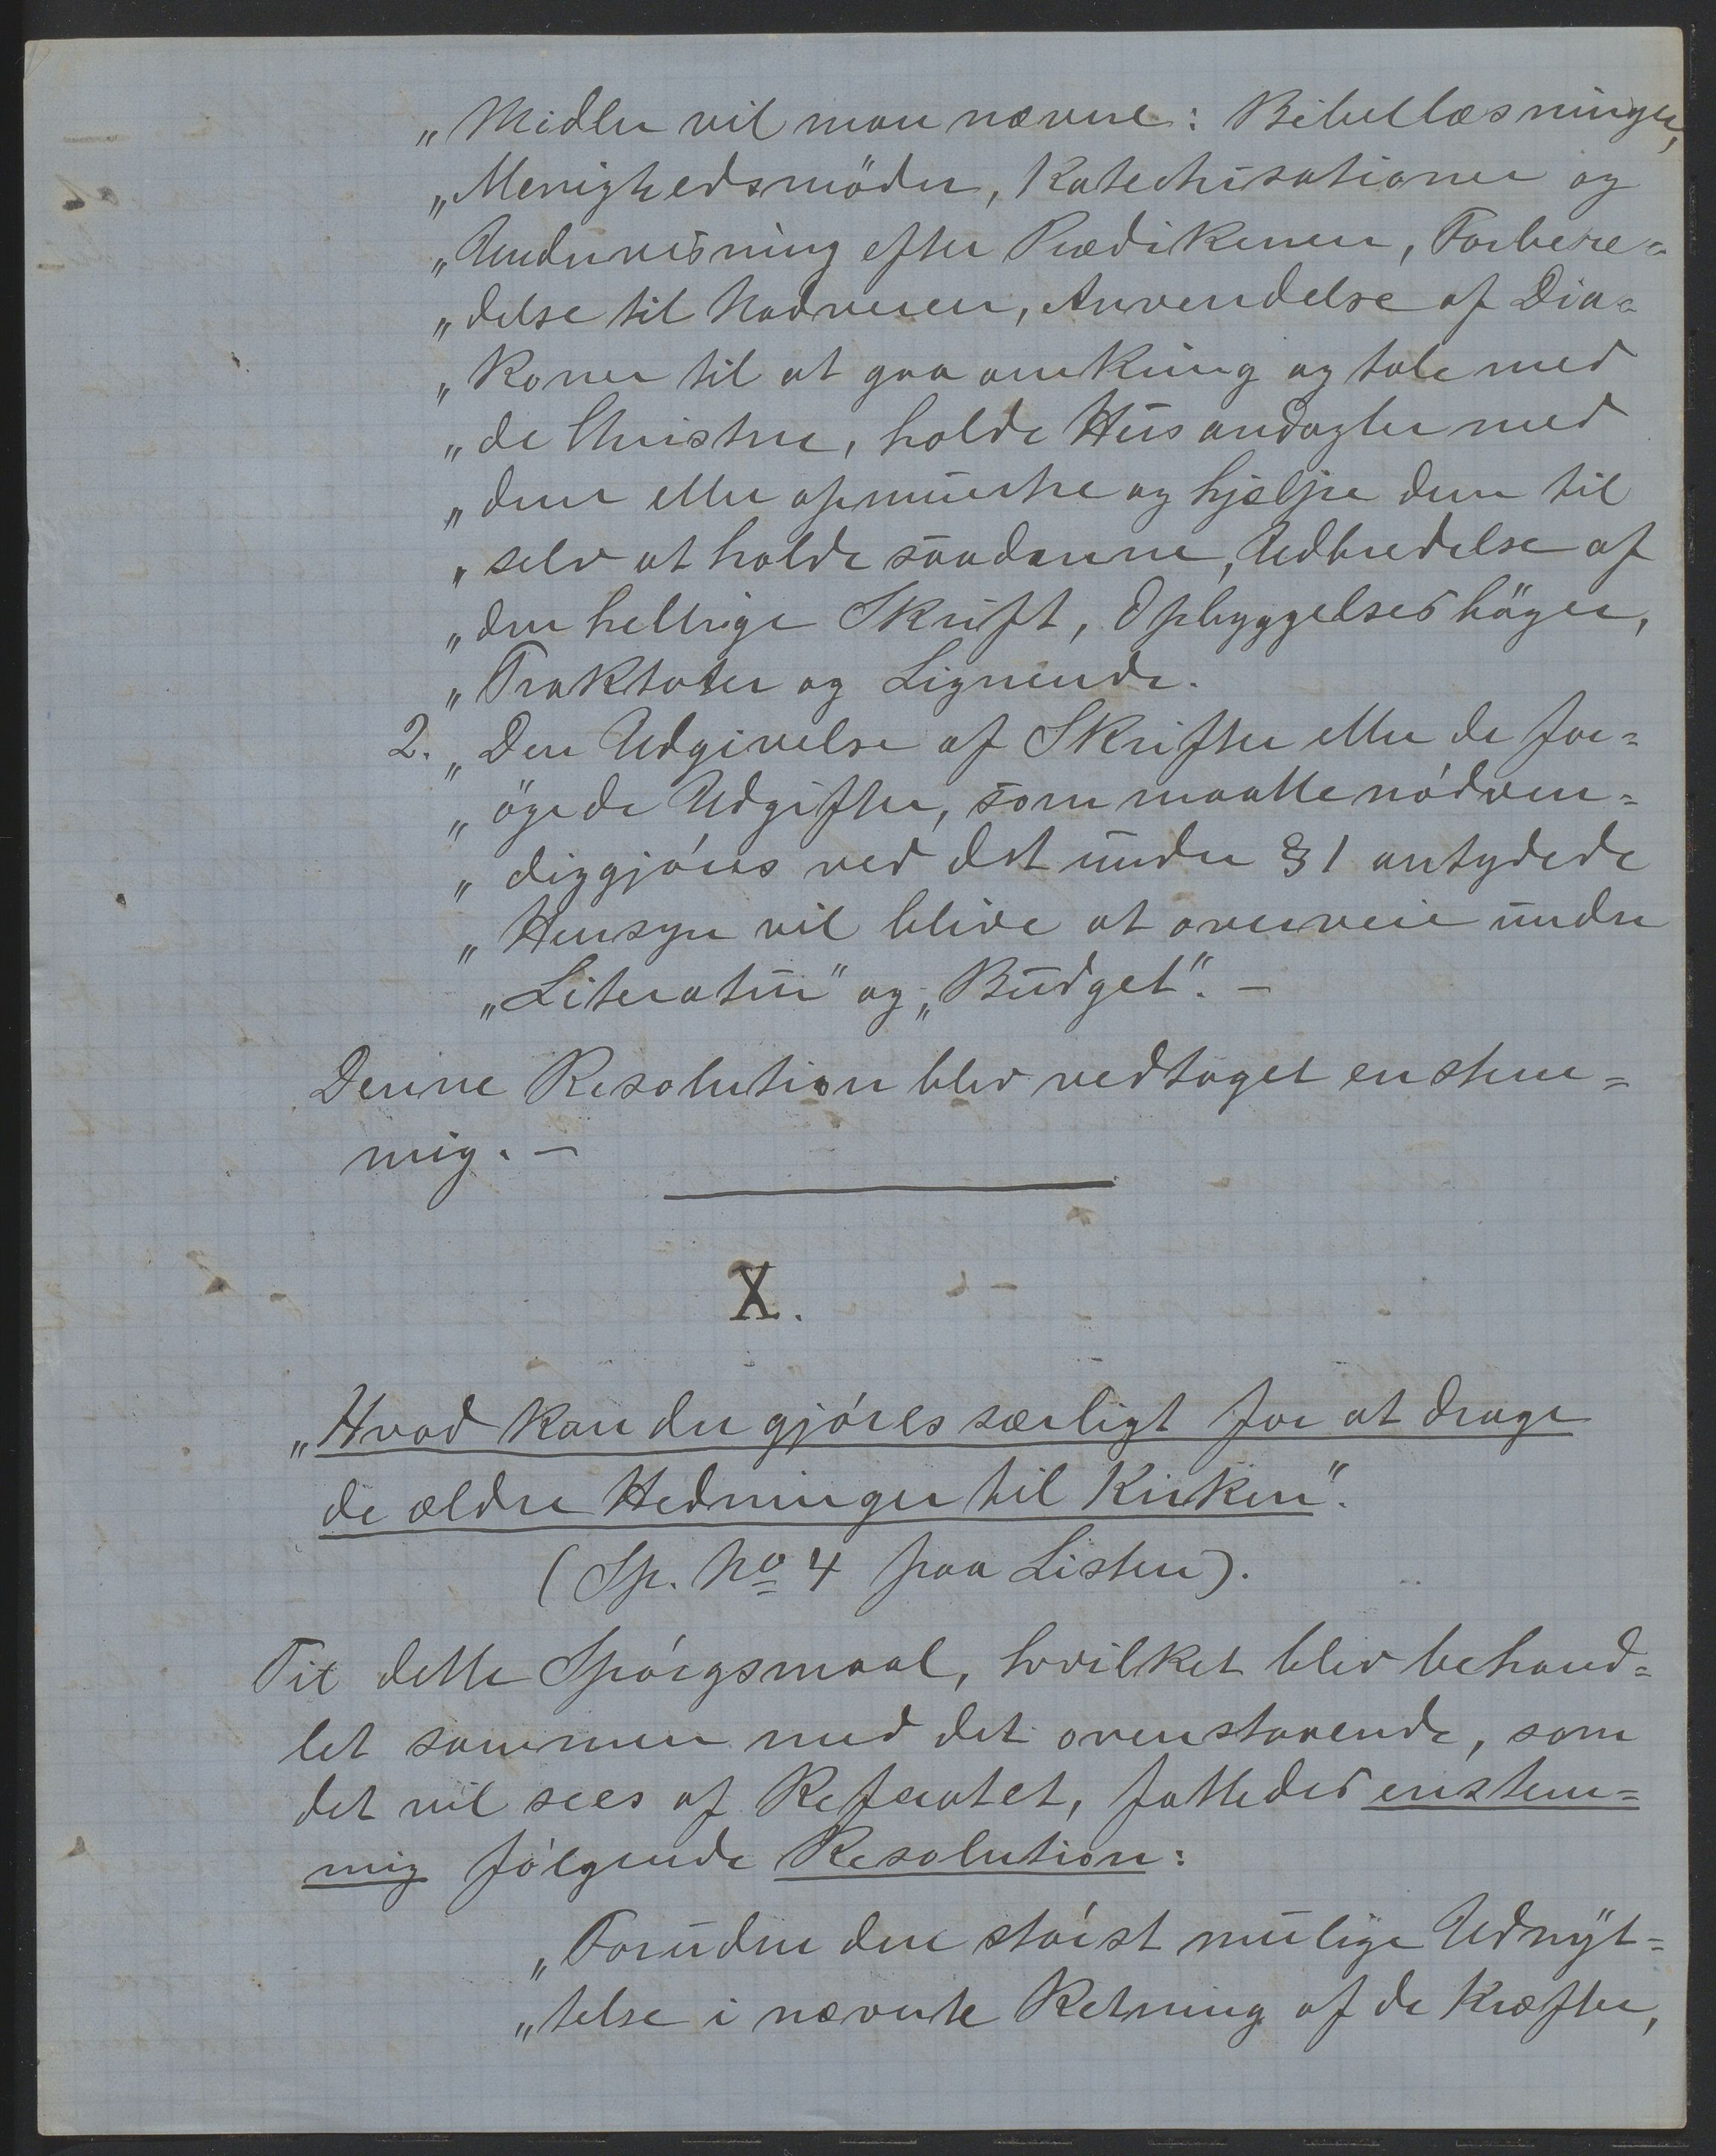 „Midler vil man nævne: Bibellæsninger,
„Menighedsmöder, Katechisationer og
„Underviisning efter Prædikenen, Forbere=
„delse til Nadveren, Anvendelse af Dia=
„koner til at gaa omkring og tale med
„de Christne, holde Husandagter med
„dem eller opmuntre og hjælpe dem til
„selv at holde saadanne, Udbredelse af
„den hellige Skrift, Opbyggelsesböger,
„Traktater og Lignende.
2. „Den Udgivelse af Skrifter eller de for=
„ögede Udgifter, som maatte nödven=
„diggjöres ved det under § 1 antydede
„Hensyn vil blive at overveie under
„Literatur" og „Budget". –
Denne Resolution blev vedtaget enstem=
mig. –
X.
„Hvad kan der gjöres særligt for at drage
de ældre Hedninger til Kirken".
(Sp. No 4 paa Listen).
Til dette Spörgsmaal, hvilket blev behand=
let sammen med det ovenstaaende, som
det vil sees af Referatet, fattedes enstem=
mig fölgende Resolution:
„Foruden den störst mulige Udnyt=
„telse i nævnte Retning af de Kræfter,